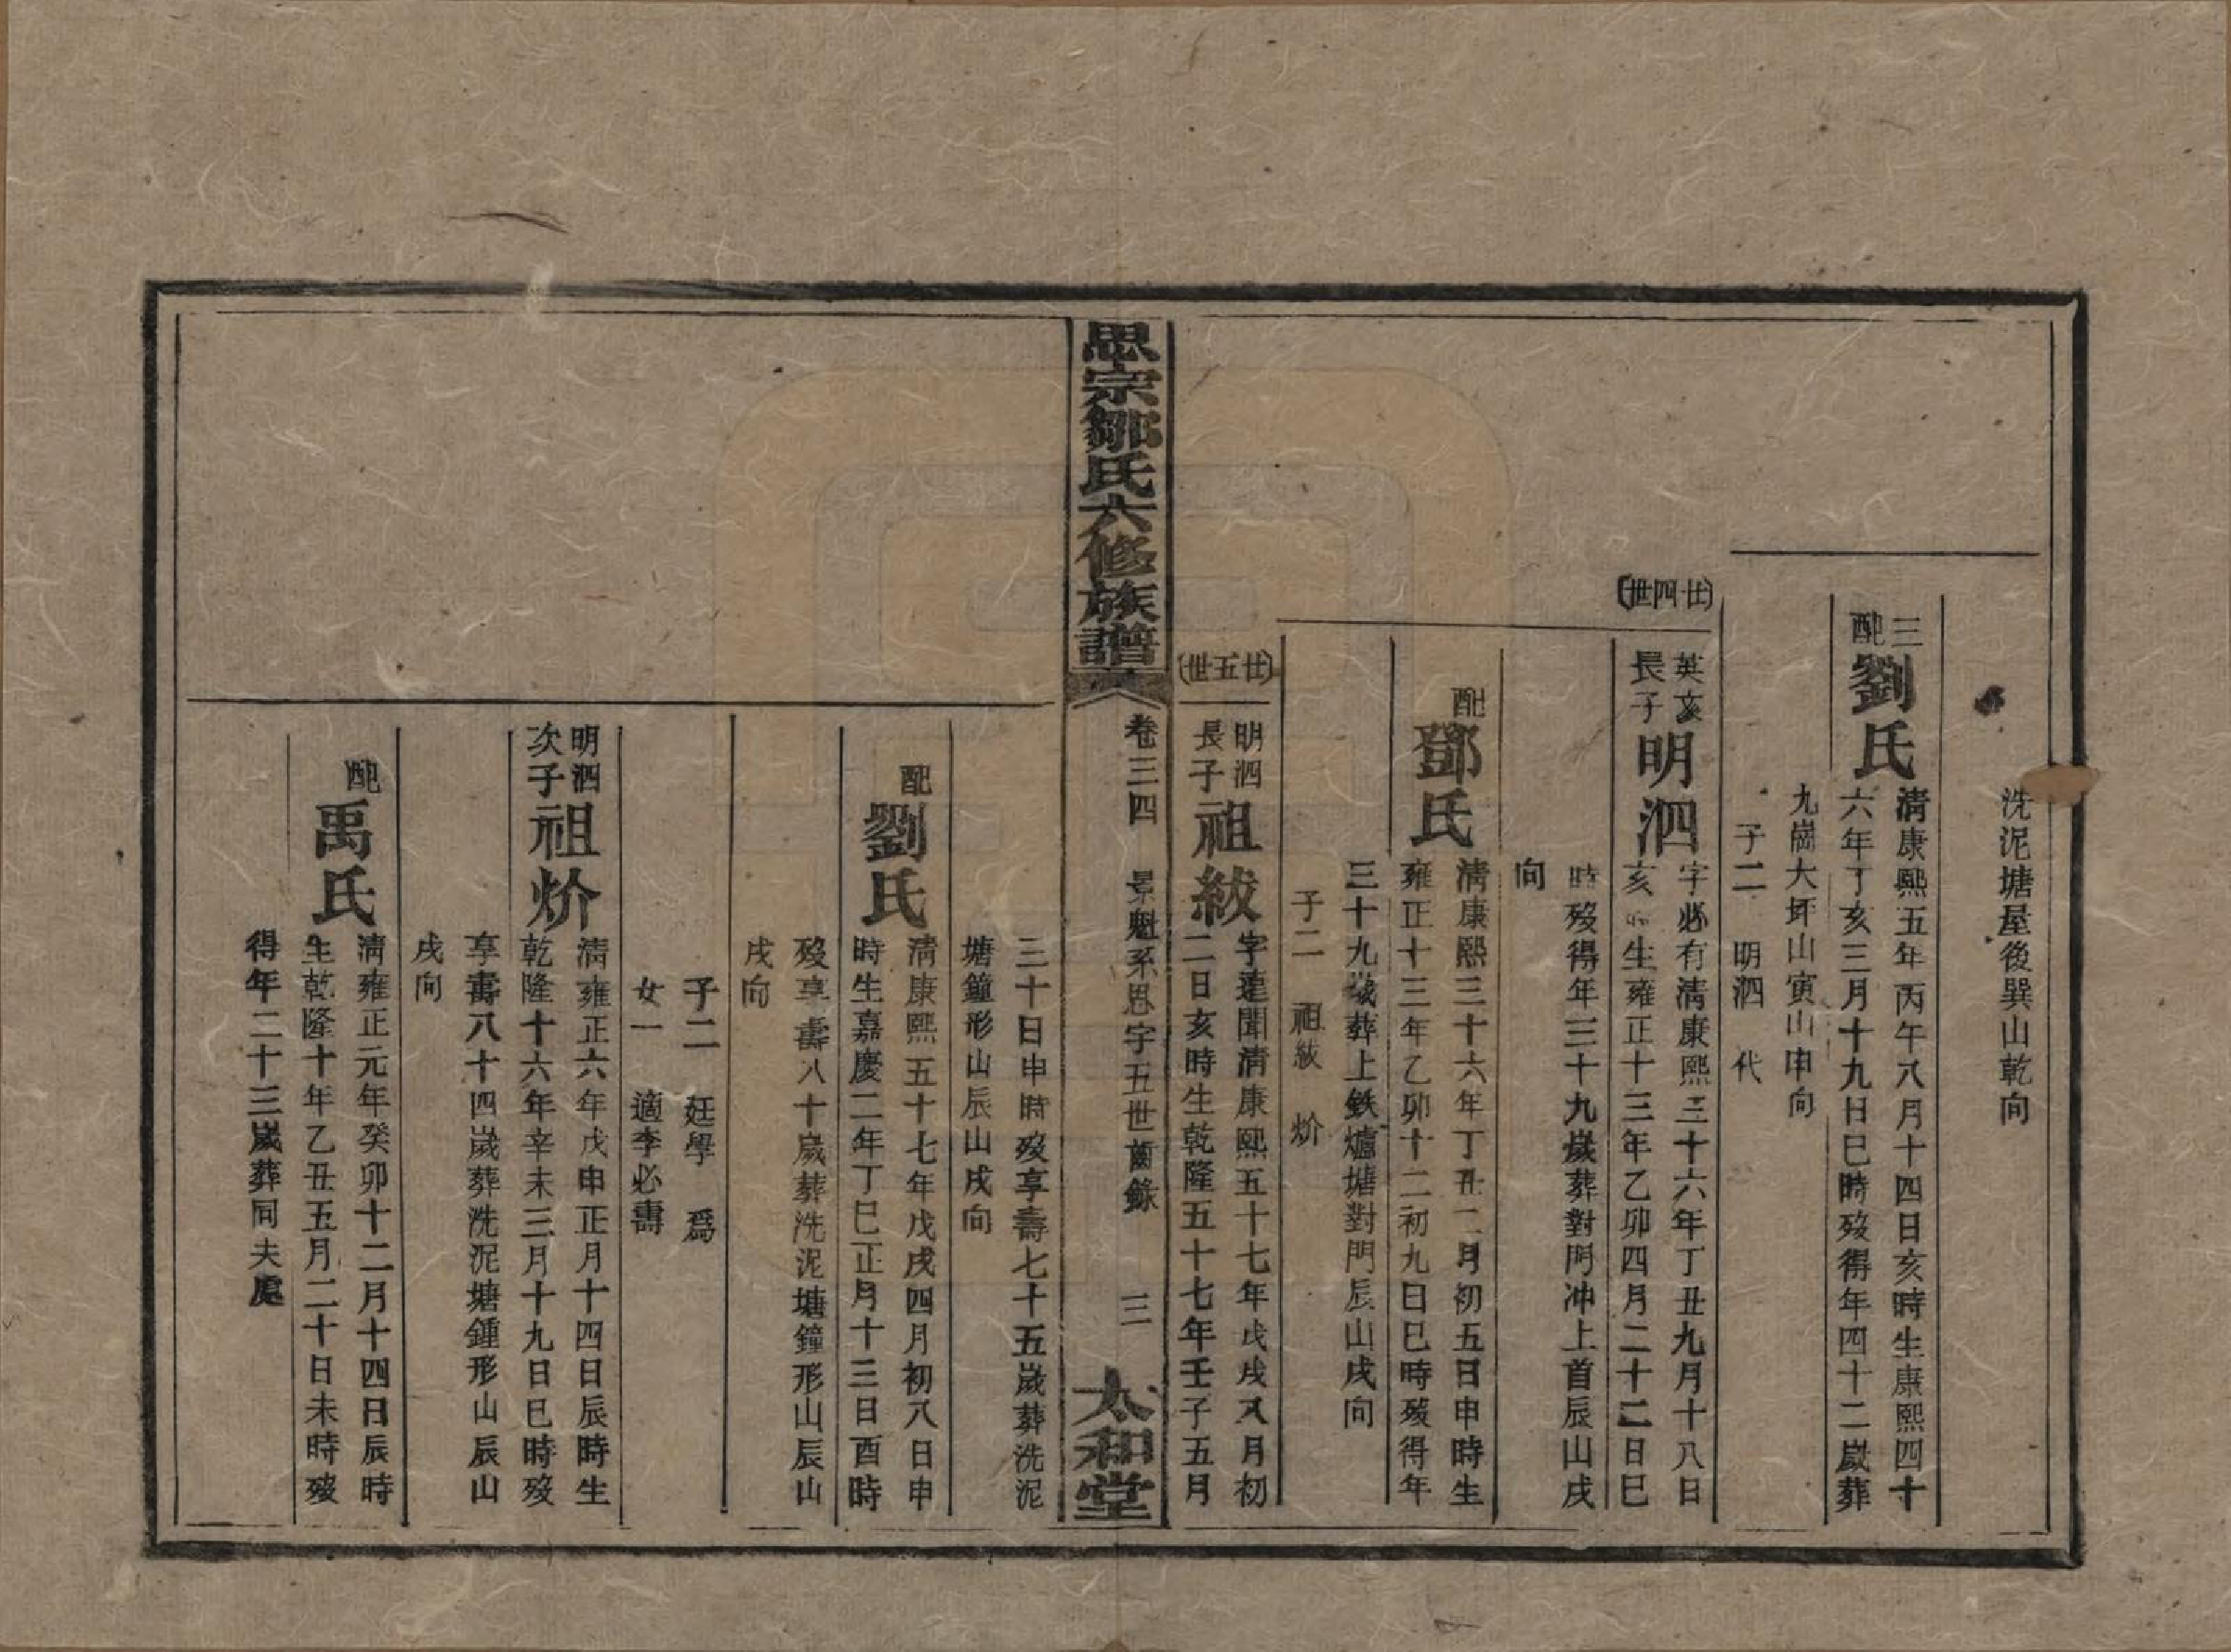 洗泥塘屋後巽山乾向
三配劉氏
清康熙五年丙午八月十四日亥時生康熙四十
六年丁亥三月十九日巳時歿得年四十二歲葬
九崗大坪山寅山申向
子二 明泗 代
(廿四世)
英文長子明泗
字必有清康熙三十六年丁丑九月十八日
亥時生雍正十三年乙卯四月二十二日巳
時歿得年三十九歲葬對門冲上首辰山戌
向
配鄧氏
清康熙三十六年丁丑二月初五日申時生
雍正十三年乙卯十二初九日巳時歿得年
三十九歲葬上鉄爐塘對門辰山戌向
子二 祖紱 炌
(廿五世)
明泗長子祖紱
字達聞清康熙五十七年戊戌八月初
二日亥時生乾隆五十七年壬子五月
思宗鄒氏六修族譜
卷三四 景魁系思字五世齒錄 三
太和堂
三十日申時歿享壽七十五歲葬洗泥
塘鐘形山辰山戌向
配劉氏
清康熙五十七年戊戌四月初八日申
時生嘉慶二年丁巳正月十三日酉時
歿享壽八十歲葬洗泥塘鐘形山辰山
戌向
子二 廷學 爲
女一 適李必壽
明泗次子祖炌
清雍正六年戊申正月十四日辰時生
乾隆十六年辛未三月十九日巳時歿
享壽八十四歲葬洗泥塘鍾形山辰山
戌向
配禹氏
清雍正元年癸卯十二月十四日辰時
生乾隆十年乙丑五月二十日未時歿
得年二十三歲葬同夫處